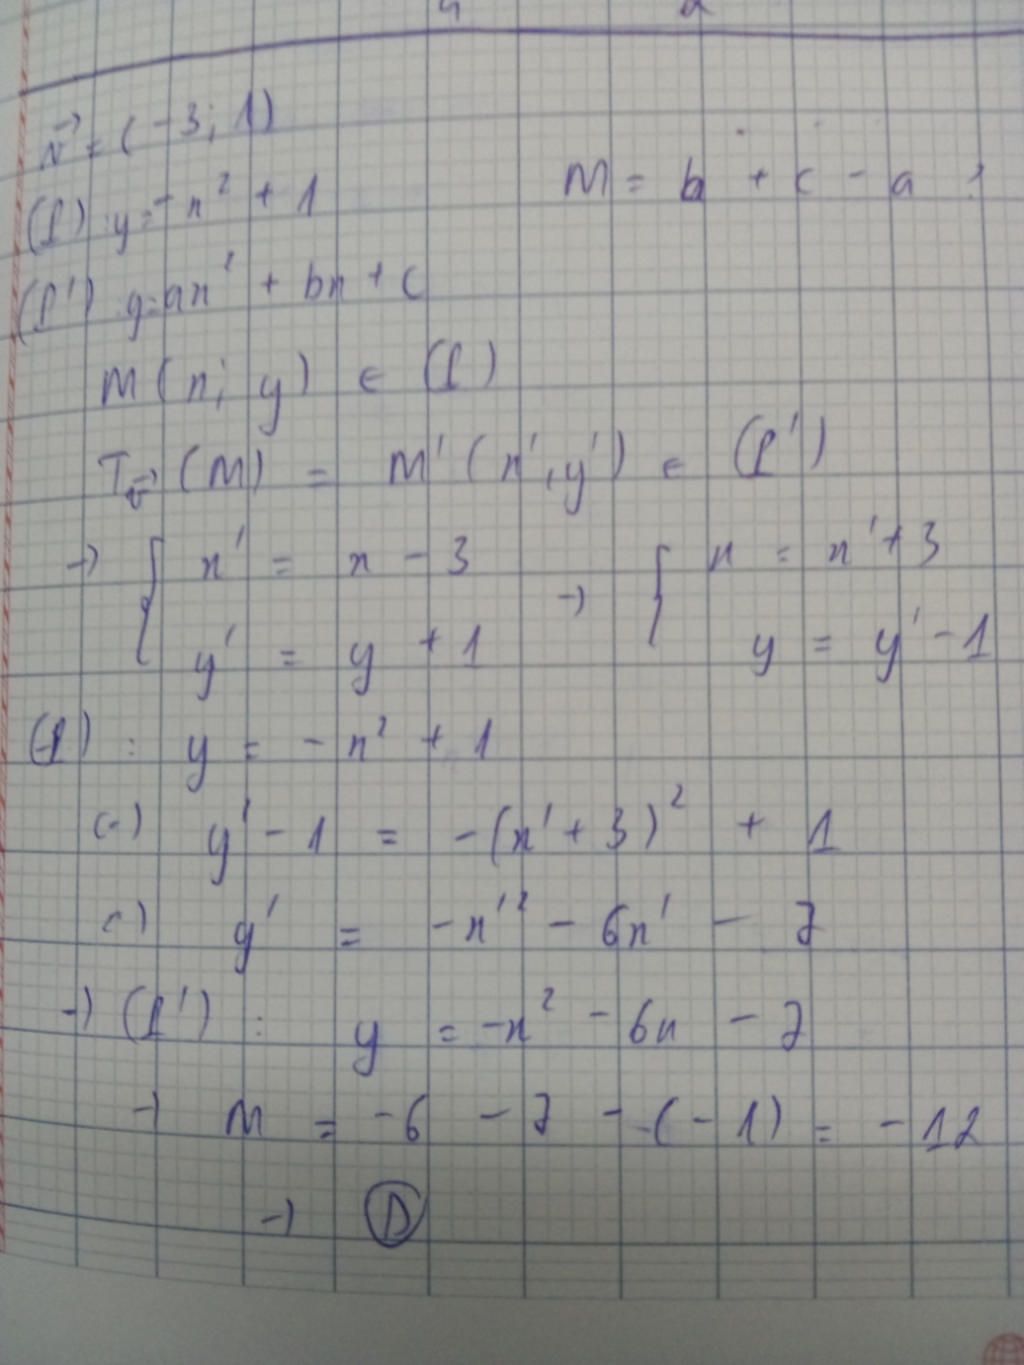 v⃗ = (-3; 1)
(P) y = -x² + 1
M = b + c - a ?
(P') y = ax² + bx + c
M(x; y) ∈ (P)
T_v⃗ (M) = M'(x', y') ∈ (P')
→ { x' = x - 3 → { x = x' + 3
y' = y + 1 y = y' - 1
(P) : y = -x² + 1
(=) y' - 1 = -(x' + 3)² + 1
(=) y' = -x'² - 6x' - 7
→ (P') : y = -x² - 6x - 7
→ M = -6 - 7 - (-1) = -12
→ D